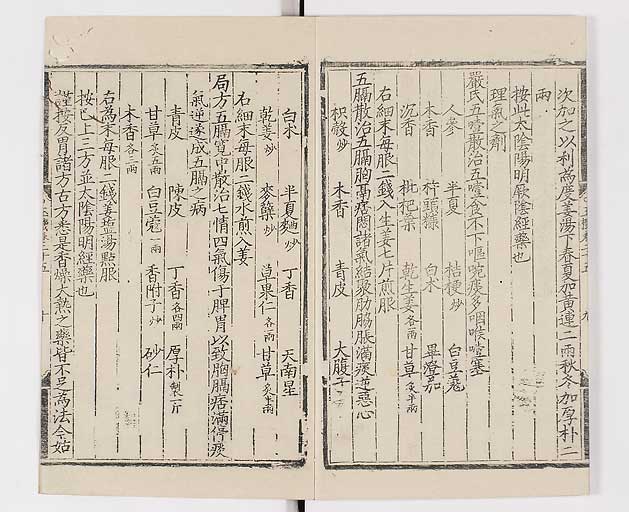 次加之以利為度姜湯下春夏加黄連二兩秋冬加厚朴二
兩
按此太陰陽明厥陰經藥也
理氣之劑
嚴氏五噎散治五噎食不下嘔啘痰多咽喉噎塞
人參 半夏 桔梗炒 白豆蔻
木香 杵頭糠 白朮 蓽澄茄
沉香 枇杷葉 乾生姜各一兩 甘草炙半兩
右細末每服二錢入生姜七片煎服
五膈散治五膈胸膈痞悶諸氣結聚肋脇脹滿痰逆惡心
枳殻炒 木香 青皮 大腹子
白朮 半夏麵炒 丁香 天南星
乾姜炒 麥蘖炒 草果仁各一兩 甘草炙半兩
右細末每服二錢水煎入姜
局方五膈寬中散治七情四氣傷于脾胃以致胸膈痞滿停痰
氣逆遂成五膈之病
青皮 陳皮 丁香各四兩 厚朴製一斤
甘草炙五兩 白豆蔻二兩 香附子炒 砂仁
木香各三兩
右為末每服二錢姜鹽湯點服
按已上三方並太陰陽明經藥也
謹按反胃諸方古方悉是香燥大熱之藥皆不足為法今始